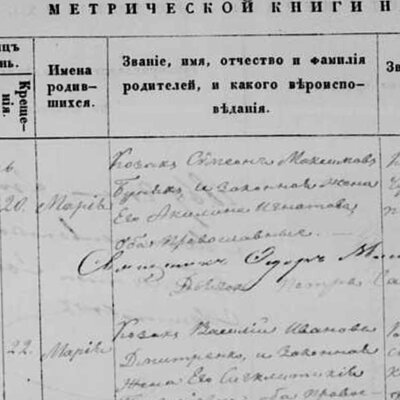 МЕТРИЧЕСКОЙ КНИГИ Н
Креще-
нія.
Имена
родив-
шихся.
Званіе, имя, отчество и фамилія
родителей, и какого вѣроиспо-
вѣданія.
Зв
20.
Марія
Козакъ Сѵмеонъ Максимовъ
и законная жена
Его Акилина Игнатова,
оба православные.
Священникъ Ѳедоръ
Дьячокъ Петръ
22.
Марія
Козакъ Василій Ивановъ
Дмитренко, и законная
жена Его
оба правос-